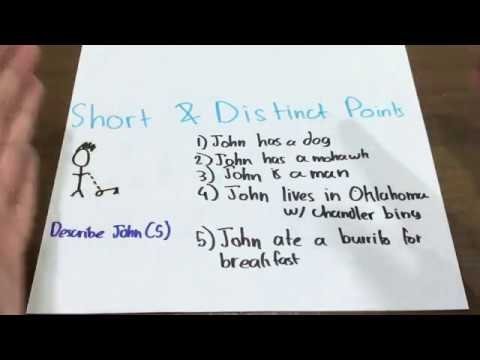 Short & Distinct Points
1) John has a dog
2) John has a mohawk
3) John is a man
4) John lives in Oklahoma
w/ chandler bing
Describe John (5)
5) John ate a burrito for
breakfast